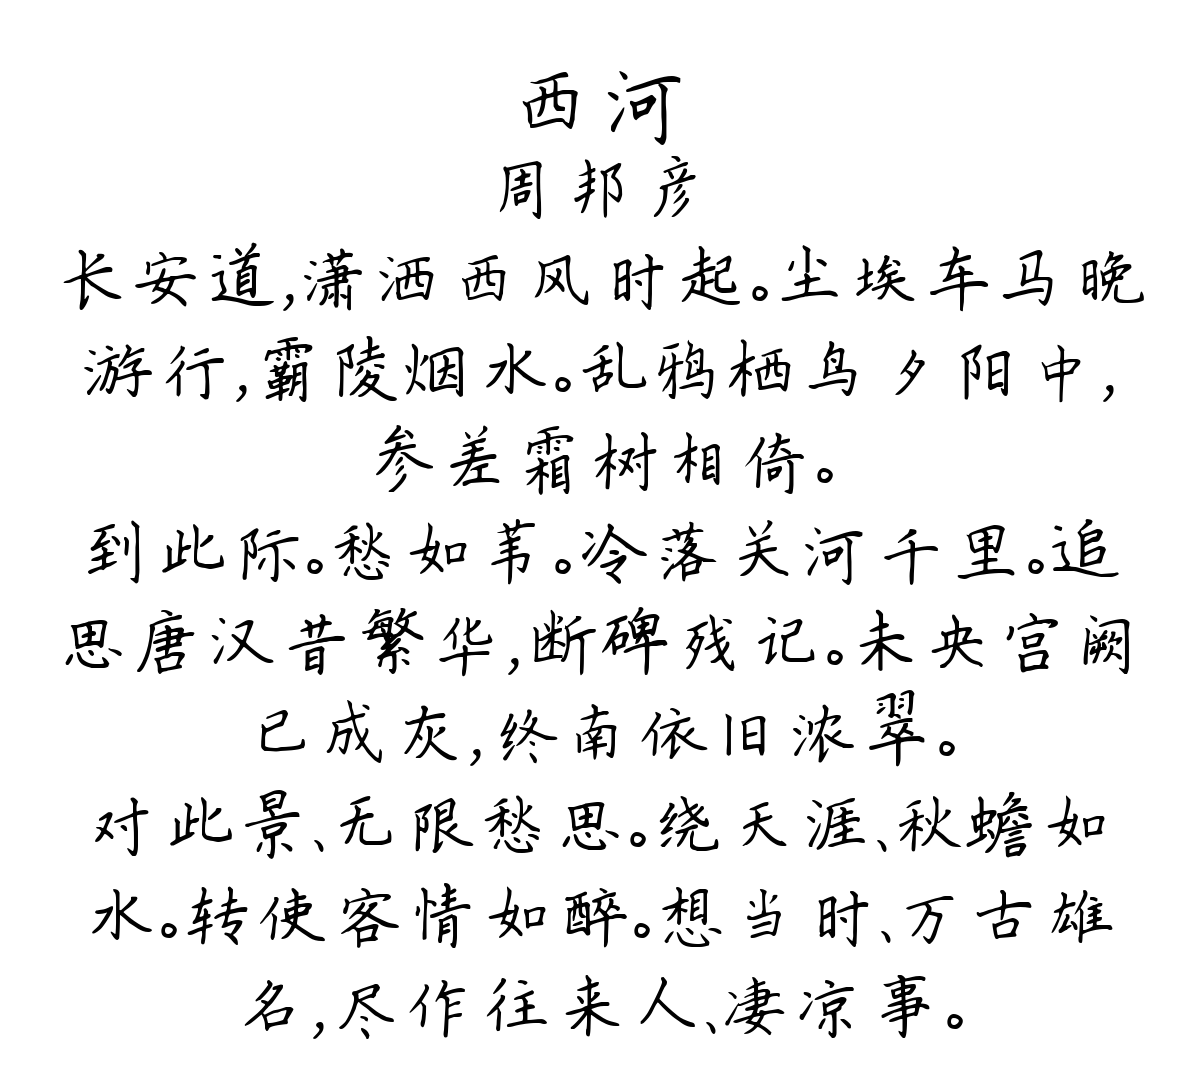 西河
周邦彦
长安道,潇洒西风时起。尘埃车马晚
游行,霸陵烟水。乱鸦栖鸟夕阳中,
参差霜树相倚。
到此际。愁如苇。冷落关河千里。追
思唐汉昔繁华,断碑残记。未央宫阙
已成灰,终南依旧浓翠。
对此景、无限愁思。绕天涯、秋蟾如
水。转使客情如醉。想当时、万古雄
名,尽作往来人、凄凉事。